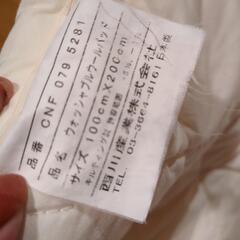 品番 CNF 079 5281
品名 ウォッシャブルウールパッド
サイズ 100cm×200cm
キルティング製 許容範囲 +5%, -1%
西川産業株式会社
TEL. 03-3664-8161 日本製